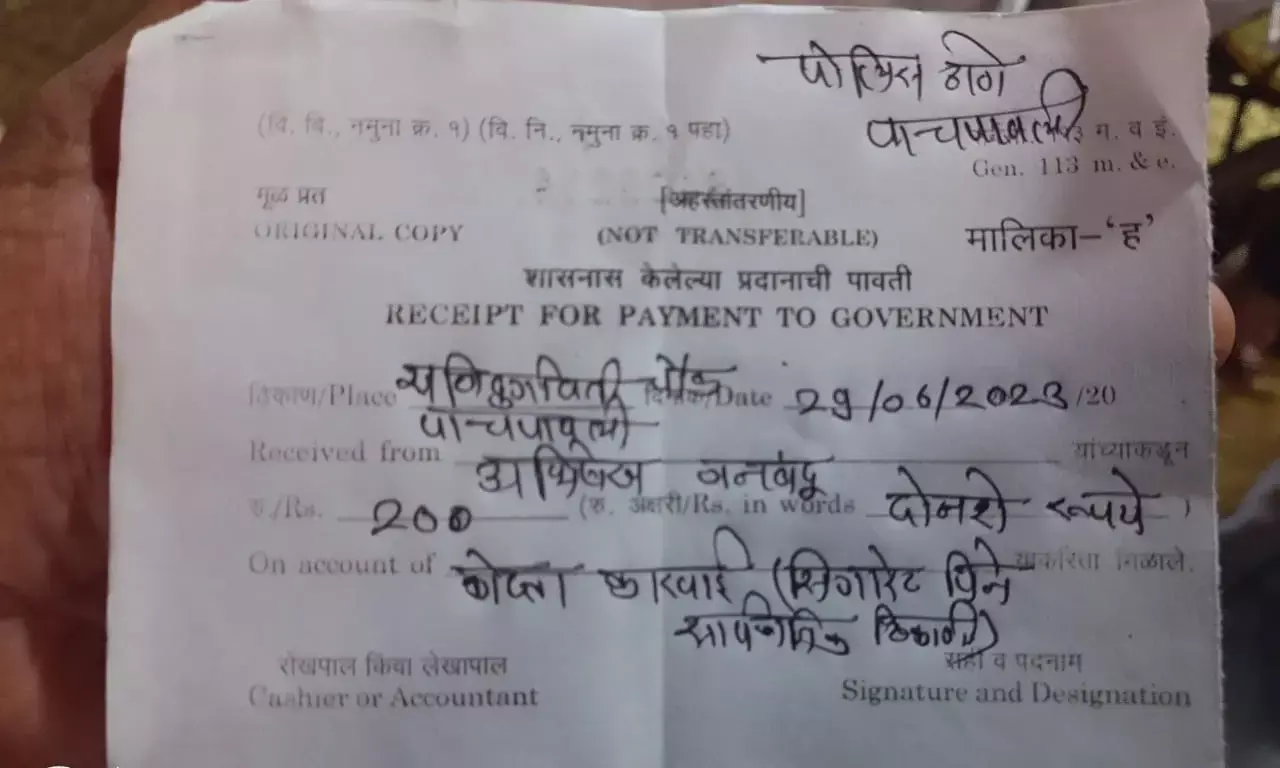 पोलिस ठाणे
पाचपावली
(वि. वि., नमुना क्र. १) (वि. नि., नमुना क्र. १ पहा)
म. व इं.
Gen. 113 m. & e.
मूळ प्रत
[अहस्तांतरणीय]
ORIGINAL COPY
(NOT TRANSFERABLE)
मालिका–‘ह’
शासनास केलेल्या प्रदानाची पावती
RECEIPT FOR PAYMENT TO GOVERNMENT
ठिकाण/Place चौक दिनांक/Date 29/06/2023 /20
Received from यांच्याकडून
रु./Rs. 200 (रु. अक्षरी/Rs. in words दोनशे रूपये )
On account of कोप्ता कारवाई (सिगारेट पिने याकरिता मिळाले.
ठिकाणी)
रोखपाल किंवा लेखापाल
सही व पदनाम
Cashier or Accountant
Signature and Designation